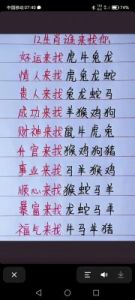 中国移动 07:40
12生肖谁来找你
好运来找 虎牛兔龙
情人来找 虎龙蛇
贵人来找 龙蛇马
成功来找 羊猴鸡狗
财神来找 鼠牛虎兔
升官来找 猴鸡狗猪
事业来找 马羊猴鸡
顺心来找 猴蛇马羊
暴富来找 龙蛇马羊
福气来找 牛马羊猪